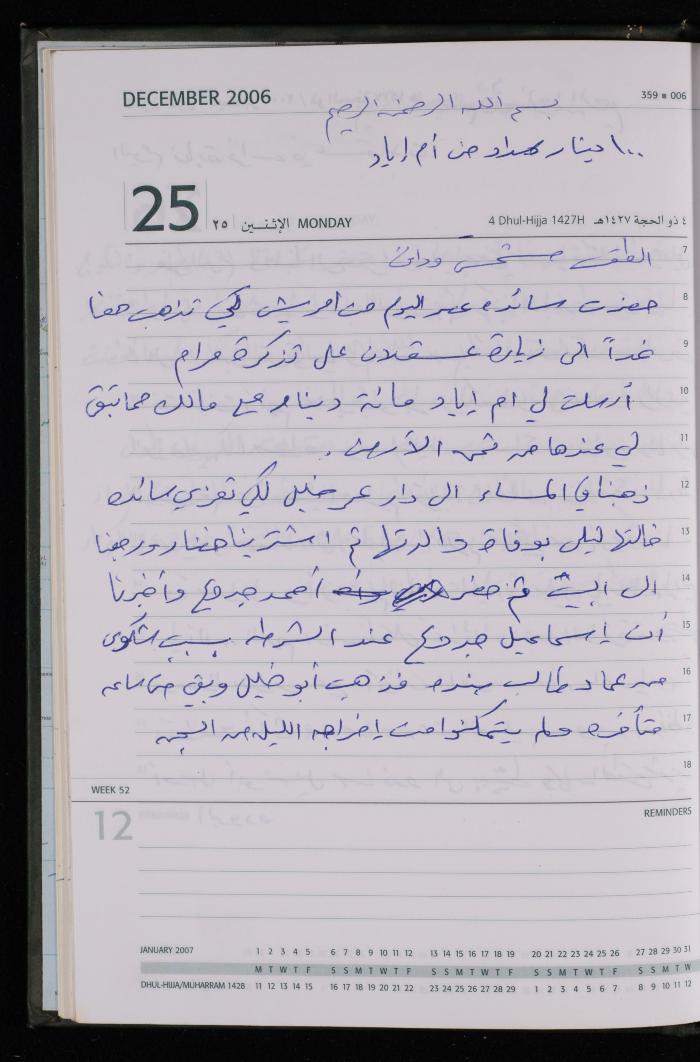 DECEMBER 2006
359 ▪ 006
بسم الله الرحمن الرحيم
١٠٠ دينار سداد من أم إياد
25 ٢٥ الإثنين MONDAY
4 Dhul-Hijja 1427H ٤ ذو الحجة ١٤٢٧هـ
7 الطقس مشمس ودافئ
8 حضرت سائده عصر اليوم من لكي تذهب معنا
9 غداً الى زيارة عسقلان على تذكرة مرام
10 أرسلت لي ام إياد مائة دينار مع مالك مما تبقى
11 لي عندها من ثمن الأرض .
12 ذهبنا في المساء الى دار عمر خليل لكي تعزي سائده
13 خالتها ليلى بوفاة والدتها ثم اشترينا خضار ورجعنا
14 الى البيت ثم حضر أحمد جدوع وأخبرنا
15 أن إسماعيل جدوع عند الشرطه بسبب شكوى
16 من عماد طالب ضده فذهب أبو خليل وبقي حتى ساعه
17 متأخره ولم يتمكنوا من إخراجه الليله من السجن
18
WEEK 52
12
REMINDERS
JANUARY 2007 1 2 3 4 5 6 7 8 9 10 11 12 13 14 15 16 17 18 19 20 21 22 23 24 25 26 27 28 29 30 31
M T W T F S S M T W T F S S M T W T F S S M T W T F S S M T W
DHUL-HIJJA/MUHARRAM 1428 11 12 13 14 15 16 17 18 19 20 21 22 23 24 25 26 27 28 29 1 2 3 4 5 6 7 8 9 10 11 12